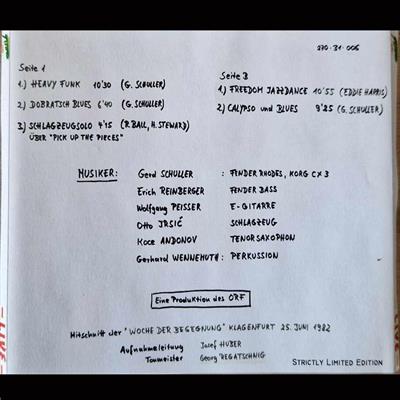 270-31-006
Seite 1
1.) HEAVY FUNK 10'30 (G. SCHULLER)
2.) DOBRATSCH BLUES 6'40 (G. SCHULLER)
3.) SCHLAGZEUGSOLO 4'15 (R. BALL, H. STEWARD)
ÜBER "PICK UP THE PIECES"
Seite B
1.) FREEDOM JAZZDANCE 10'55 (EDDIE HARRIS)
2.) CALYPSO und BLUES 9'25 (G. SCHULLER)
MUSIKER:
Gerd SCHULLER : FENDER RHODES, KORG CX3
Erich REINBERGER FENDER BASS
Wolfgang PEISSER E-GITARRE
Otto JRSIĆ SCHLAGZEUG
Koce ANDONOV TENORSAXOPHON
Gerhard WENNEMUTH : PERKUSSION
Eine Produktion des ORF
Mitschnitt der "WOCHE DER BEGEGNUNG" KLAGENFURT 25. JUNI 1982
Aufnahmeleitung Josef HUBER
Tonmeister Georg REGATSCHNIG
STRICTLY LIMITED EDITION